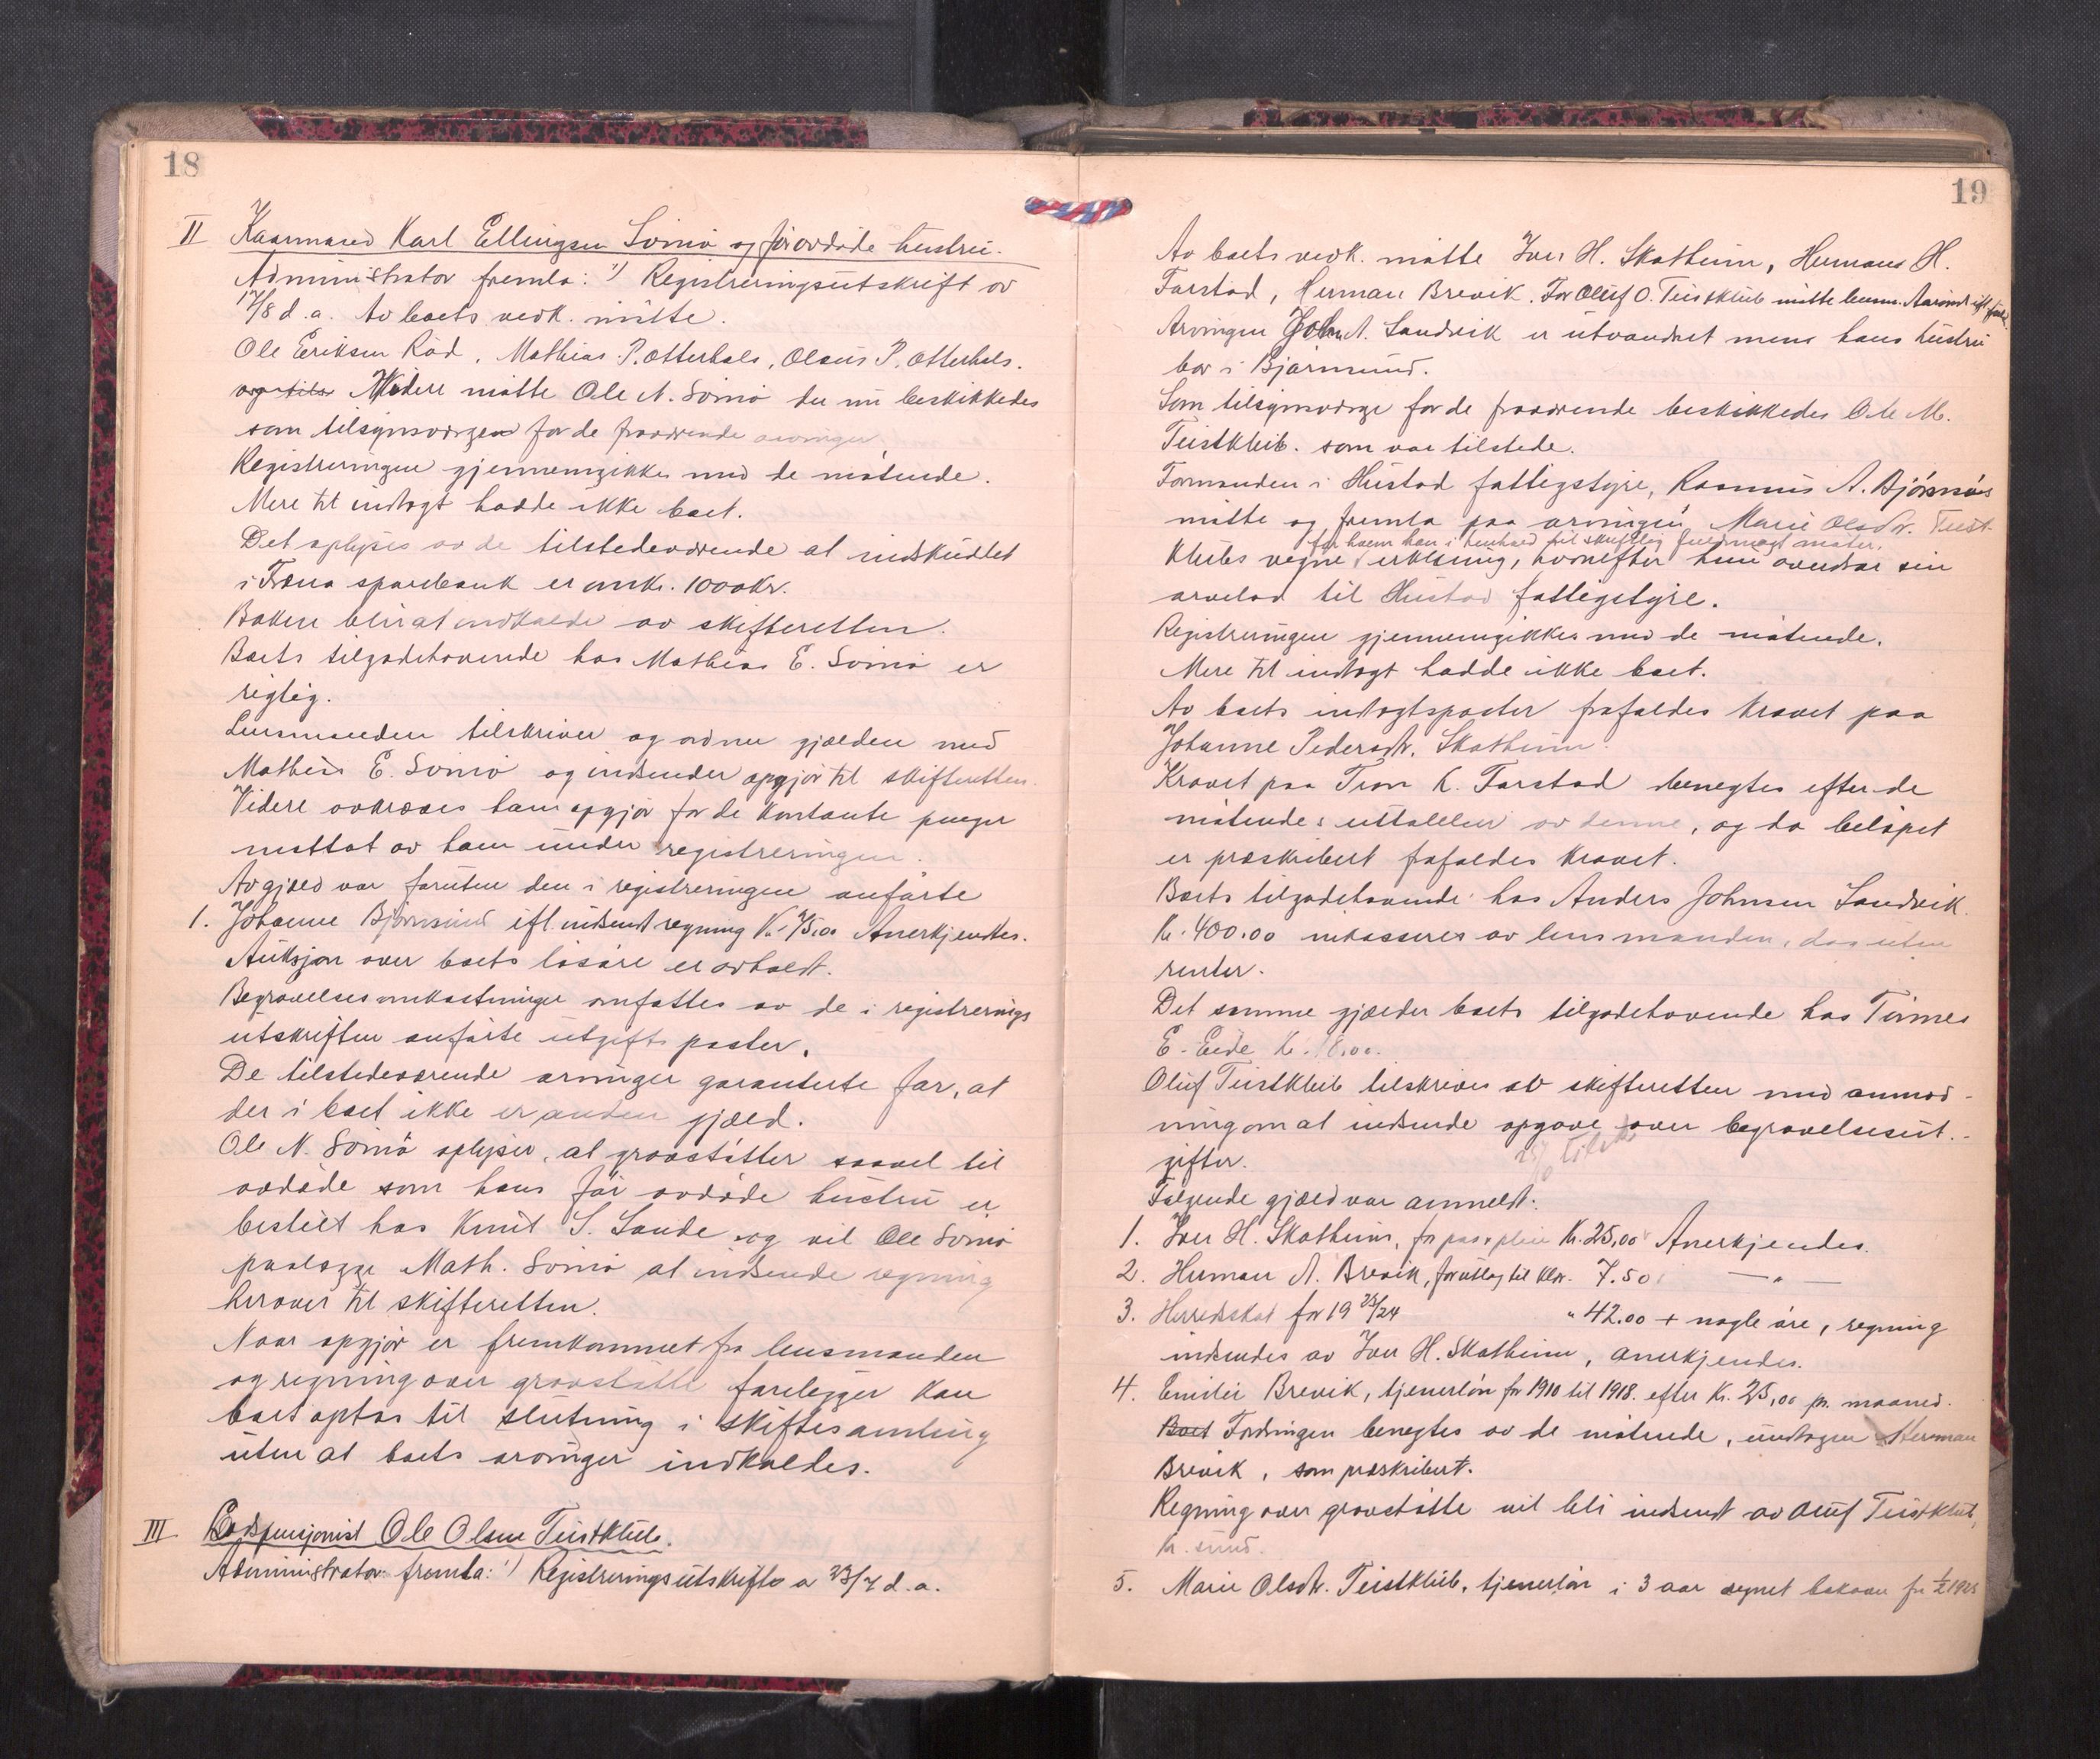 18
II Kaarmand Karl Ellingsen Sornö og foravdöde hustru.
Administrator fremla: 1) Registreringsutskrift av
12/8 d.a. Av boets vedk. mötte.
Ole Eriksen Röd, Mathias P. Otterhals, Olaus P. Otterhals.
Videre mötte Ole N. Sornö der nu beskikkedes
som tilsynsværge for de fraværende arvinger.
Registreringen gjennemgikkes med de mötende.
Mere til indtægt hadde ikke boet.
Det oplyses av de tilstedeværende at indskuddet
i Fræna sparebank er omkr. 1000 kr.
Boken blir at indkalde av skifteretten.
Boets tilgodehavende hos Mathias E. Sornö er
rigtig.
Lensmanden tilskriver og ordner gjælden med
Mathias E. Sornö og indsender opgjör til skifteretten.
Videre avkræves ham opgjör for de kontante penger
mottat av ham under registreringen.
Av gjæld var foruten den i registreringen anförte
1. Johanne Björnsund efl. indsendt regning Kr. 75,00 Anerkjendtes.
Auksjon over boets lösöre er avholdt.
Begravelsesomkostninger omfattes av de i registrerings
utskriften anförte utgiftsposter.
De tilstedeværende arvinger garanterte for, at
der i boet ikke er anden gjæld.
Ole N. Sornö oplyser, at gravstötter saavel til
avdöde som hans för avdöde hustru er
bestilt hos Knut S. Sande og vil Ole Sornö
paalægge Math. Sornö at indsende regning
herover til skifteretten.
Naar opgjör er fremkommet fra lensmanden
og regning over gravstötte forelegger kan
boet optas til slutning i skiftesamling
uten at boets arvinger indkaldes.
III Ole Olsen Teistklub.
Administrator fremla: 1) Registreringsutskrift a 23/7 d.a.
19
Av boets vedk. mötte Iver H. Skotheim, Hermann H.
Farstad, Herman Brevik. For Oluf O. Teistklub mötte
Arvingen John A. Sandvik er utvandret mens hans hustru
bor i Bjørnsund.
Som tilsynsværge for de fraværende beskikkedes Ole M.
Teistklub. som var tilstede.
Formanden i Hustad fattigstyre, Rasmus A. Björnsös
mötte og fremla paa arvingen Marie Olsdtr. Teist-
for hvem han i henhold til skriftlig fuldmagt möter,
klubs vegne erklæring, hvorefter hun overdrar sin
arvelod til Hustad fattigstyre.
Registreringen gjennemgikkes med de mötende.
Mere til indtægt hadde ikke boet.
Av boets indtægtsposter frafaldes kravet paa
Johanne Pedersdtr. Skotheim.
Kravet paa Tron K. Farstad benegtes efter de
mötendes uttalelser av denne, og da belöpet
er præskribert frafaldes kravet.
Boets tilgodehavende hos Anders Johnsen Sandvik
Kr. 400.00 inkasseres av lensmanden, dog uten
renter.
Det samme gjælder boets tilgodehavende hos Tönnes
E. Eide Kr. 18.00.
Oluf Teistklub tilskrives av skifteretten med anmod-
ning om at indsende opgave over begravelsesut-
gifter.
Følgende gjæld var anmeldt:
1. Iver H. Skotheim, for pas & pleie Kr. 25,00 Anerkjendes.
2. Herman A. Brevik, for utlæg til klær. 7.50 — " —
3. Herredsskat for 19 23/24 " 42.00 + nogle öre, regning
indsendes av Iver H. Skotheim, anerkjendes.
4. Emilie Brevik, tjenerlön for 1910 til 1918. efter Kr. 25,00 pr. maaned.
Boet Fordringen benegtes av de mötende, undtagen Herman
Brevik, som præskribert.
Regning over gravstötte vil bli indsendt av Oluf Teistklub,
Kr. sund.
5. Marie Olsdtr. Teistklub, tjenerlön i 3 aar regnet bakover fra